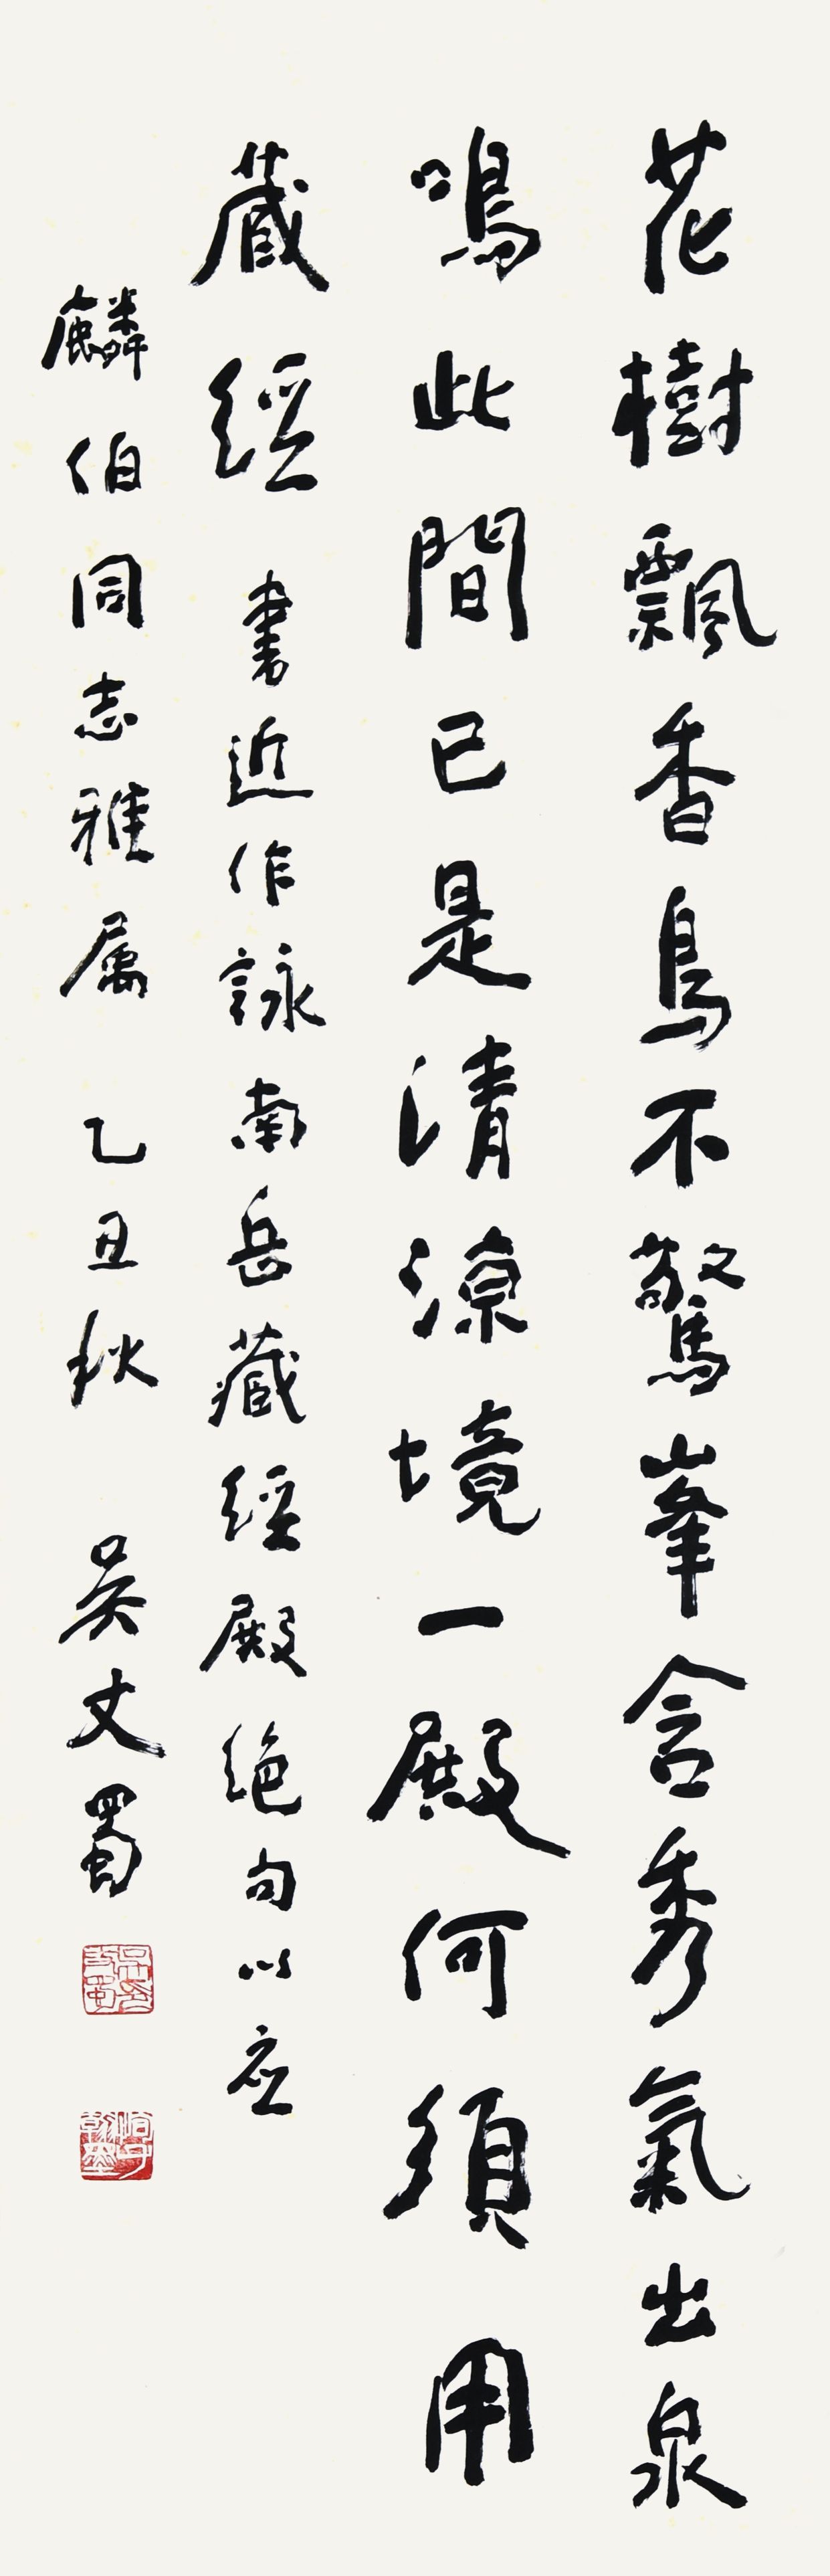 花樹飄香鳥不驚峯含秀氣出泉
鳴此間已是清涼境一殿何須用
藏經 書近作詠南岳藏經殿絕句以应
麟伯同志雅属 乙丑秋 吴丈蜀